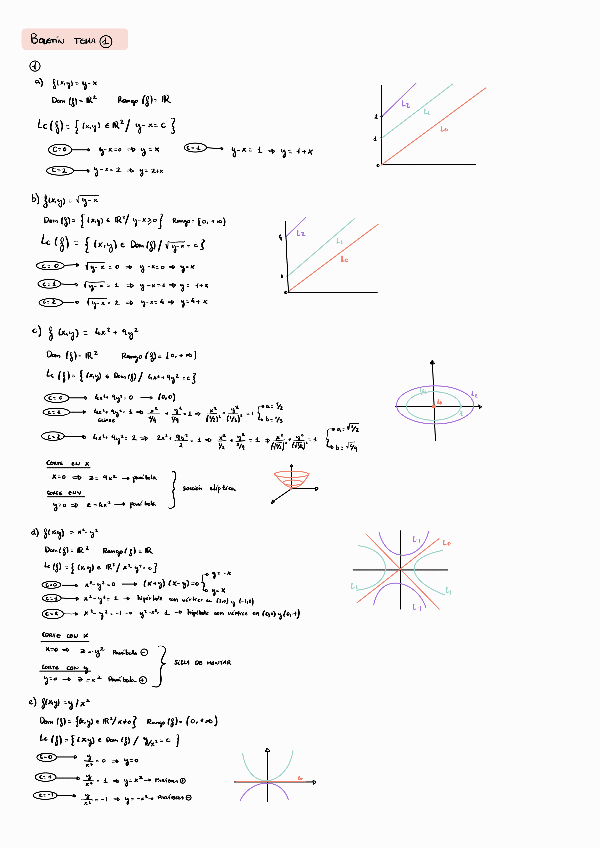 BOLETÍN TEMA 1
1
a) f(x,y) = y-x
Dom (f) = ℝ² Rango (f) = ℝ
Lc (f) = { (x,y) ∈ ℝ² / y-x = c }
C=0 → y-x=0 ⇒ y=x C=1 → y-x = 1 ⇒ y = 1+x
C=2 → y-x = 2 ⇒ y = 2+x
L2 L1 L0
b) f(x,y) = √y-x
Dom (f) = { (x,y) ∈ ℝ² / y-x ≥ 0 } Rango = [0, +∞)
Lc (f) = { (x,y) ∈ Dom (f) / √y-x = c }
C=0 → √y-x = 0 ⇒ y-x=0 ⇒ y=x
C=1 → √y-x = 1 ⇒ y-x=1 ⇒ y = 1+x
C=2 → √y-x = 2 ⇒ y-x=4 ⇒ y=4+x
L2 L1 L0
c) f (x,y) = 4x² + 9y²
Dom (f) = ℝ² Rango (f) = [0, +∞)
Lc (f) = { (x,y) ∈ Dom (f) / 4x²+9y² = c }
C=0 → 4x²+9y² = 0 → (0,0)
C=1 → 4x²+9y² = 1 ⇒ x²/1/4 + y²/1/9 = 1 ⇒ x²/(1/2)² + y²/(1/3)² = 1 a = 1/2 b = 1/3
C=2 → 4x²+9y² = 2 ⇒ 2x² + 9y²/2 = 1 ⇒ x²/1/2 + y²/2/9 = 1
L2 L0
CORTE EN X
x=0 ⇒ z = 9x² → parábola
CORTE EN Y
y=0 ⇒ z = 4x² → parábola
sección elíptica
d) f(x,y) = x²-y²
Dom (f) = ℝ² Rango (f) = ℝ
Lc (f) = { (x,y) ∈ ℝ² / x²-y² = c }
C=0 → x²-y² = 0 → (x+y) (x-y) = 0 y = -x y = x
C=1 → x²-y² = 1 → hipérbola con vértice en (1,0) y (-1,0)
→ x²-y² = -1 → y²-x² = 1 → hipérbola con vértice en (0,1) y (0,-1)
L1 L0
L1 L1
L1
CORTE CON X
x=0 ⇒ z = -y² Parábola ⊖
CORTE CON Y
y=0 → z = x² Parábola ⊕
SILLA DE MONTAR
e) f(x,y) = y/x²
Dom (f) = { (x,y) ∈ ℝ² / x≠0 } Rango (f) = (0, +∞)
Lc (f) = { (x,y) ∈ Dom (f) / y/x² = c }
C=0 → y/x² = 0 ⇒ y=0
C=1 → y/x² = 1 ⇒ y = x² → Parábola ⊕
C=-1 → y/x² = -1 ⇒ y = -x² → Parábola ⊖
L0